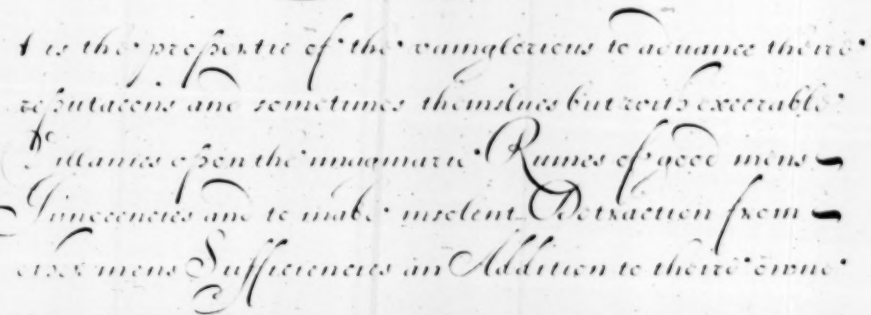 t is the propertie of the vainglorious to aduance theire
reputacons and sometimes themselues but with execrable
Villanies vpon the imaginarie Ruines of good mens
Innocencies and to make insolent Detraction from
other mens Sufficiencies an Addition to theire owne